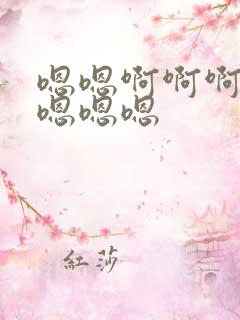 嗯嗯啊啊啊
嗯嗯嗯
紅莎